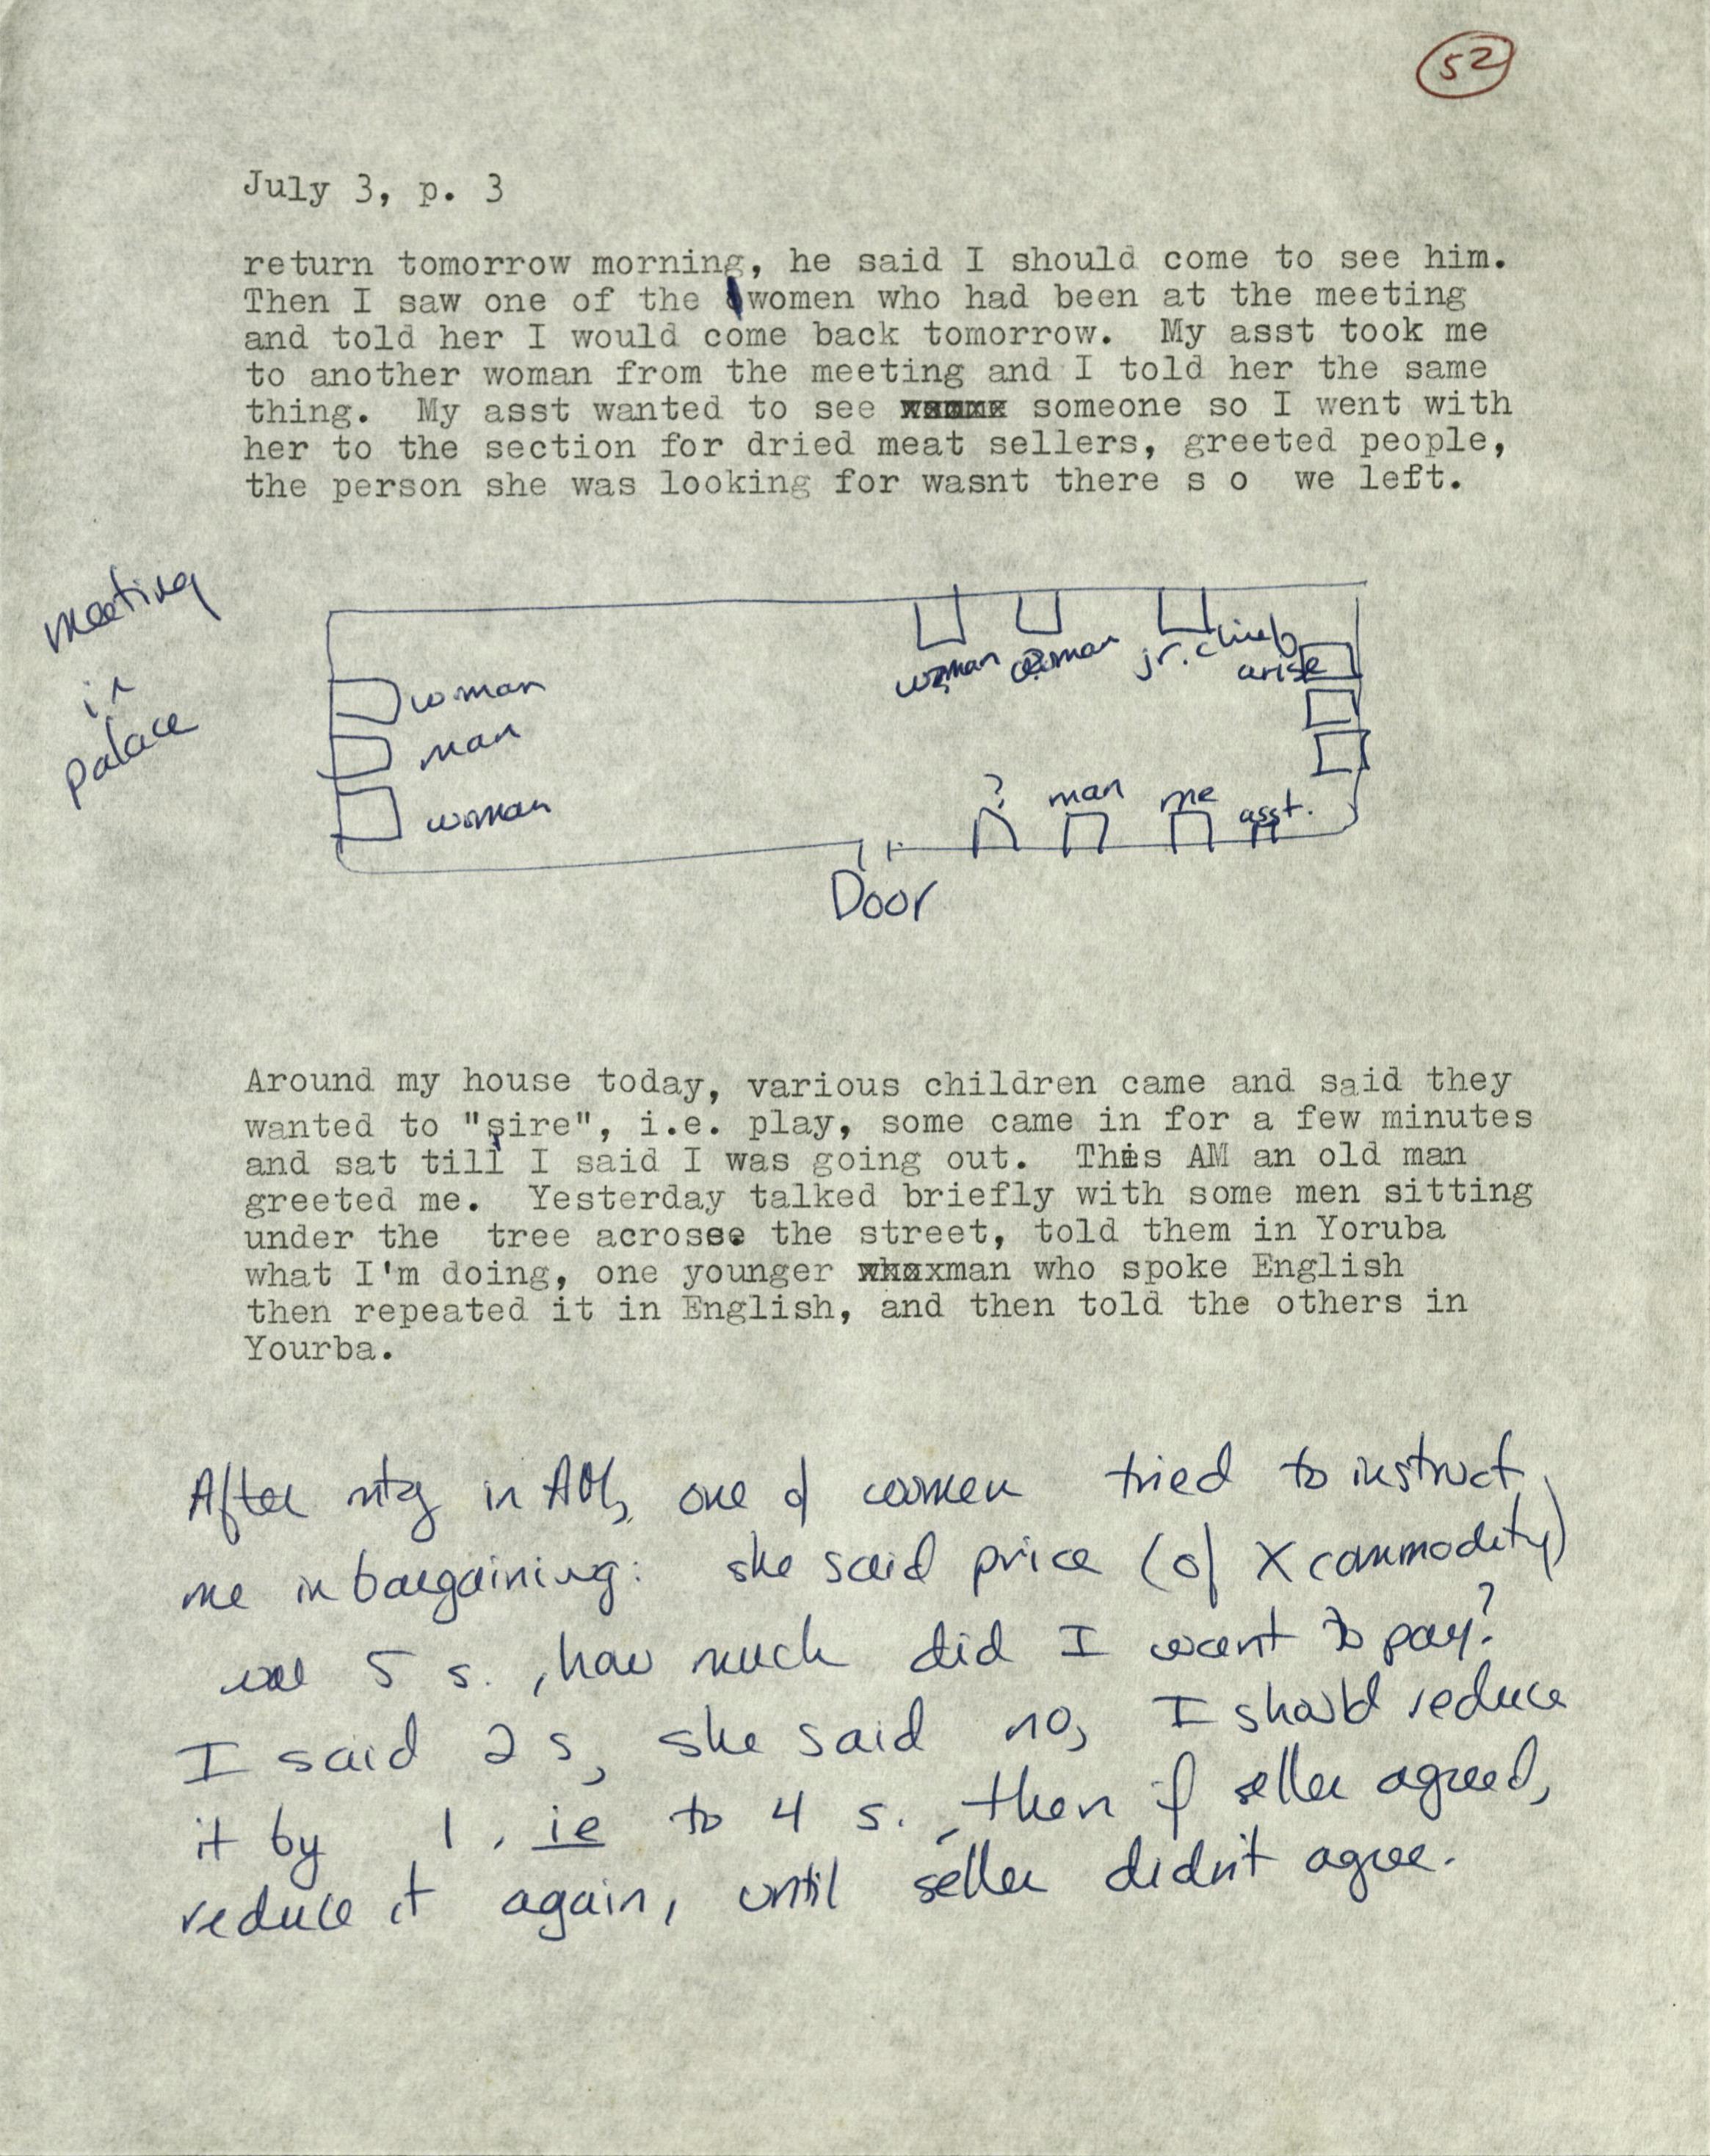 52
July 3, p. 3
return tomorrow morning, he said I should come to see him.
Then I saw one of the women who had been at the meeting
and told her I would come back tomorrow. My asst took me
to another woman from the meeting and I told her the same
thing. My asst wanted to see someone so I went with
her to the section for dried meat sellers, greeted people,
the person she was looking for wasnt there s o we left.
meeting
in
palace
woman
woman
jr. chiefs
arise
woman
man
woman
?
man
me
asst.
Door
Around my house today, various children came and said they
wanted to "ṣire", i.e. play, some came in for a few minutes
and sat till I said I was going out. This AM an old man
greeted me. Yesterday talked briefly with some men sitting
under the tree acrosse the street, told them in Yoruba
what I'm doing, one younger man who spoke English
then repeated it in English, and then told the others in
Yourba.
After mtg in AM, one of women tried to instruct
me in bargaining: she said price (of X commodity)
was 5 s., how much did I want to pay?
I said 2 s, she said no, I should reduce
it by 1, ie to 4 s., then if seller agreed,
reduce it again, until seller didn't agree.